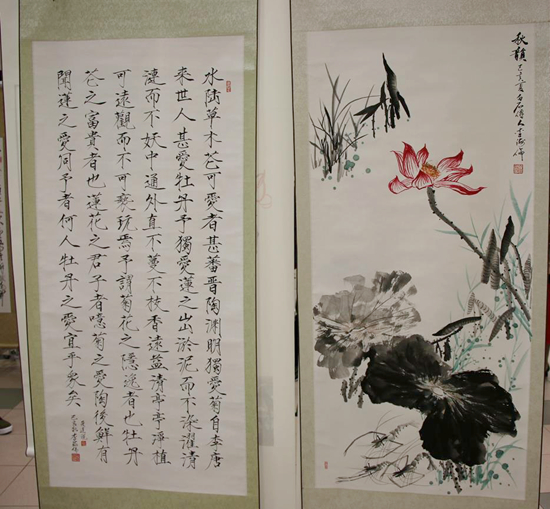 水陸草木花可愛者甚蕃晋陶渊明獨愛菊自李唐
来世人甚愛牡丹予獨愛蓮之出淤泥而不染濯清
漣而不妖中通外直不蔓不枝香遠益清亭亭淨植
可遠觀而不可褻玩焉予謂菊花之隱逸者也牡丹
花之富貴者也蓮花之君子者噫菊之愛陶後鮮有
聞蓮之愛同予者何人牡丹之愛宜乎衆矣
秋韻